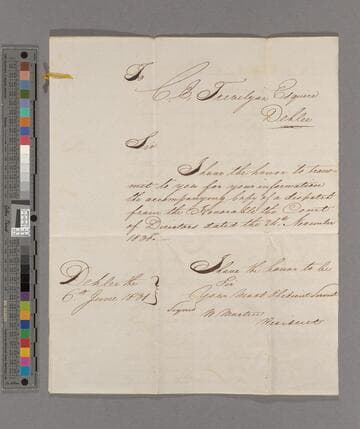 To
C. E. Trevelyan Esquire
Dehlee
Sir
I have the honor to trans-
mit to you for your information
the accompanying Copy of a despatch
from the Honorable the Court
of Directors dated the 24th November
Dehlee the
6th June 1831
I have the honor to be
Sir
Your Most Obedient Servant
Signed
W Martin
Resident